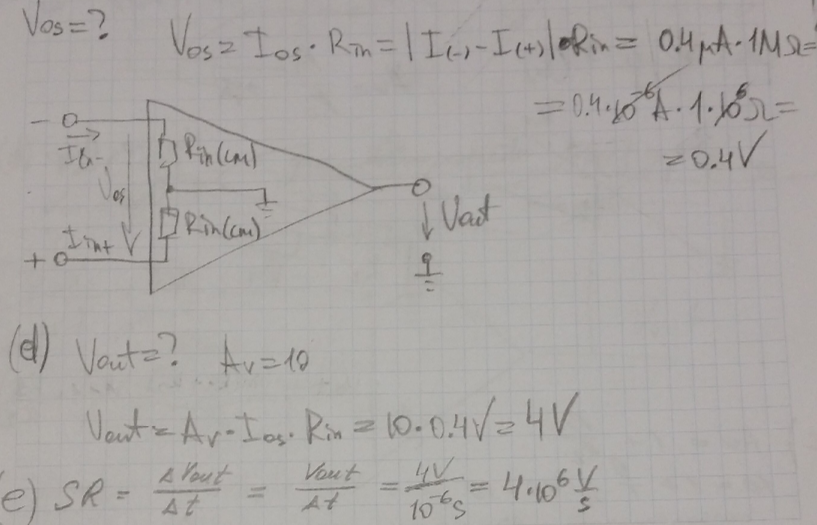 Vos=? Vos = Ios · Rin = | I(-) - I(+) | · Rin = 0.4 μA · 1MΩ =
= 0.4·10⁻⁶A · 1·10⁶Ω =
= 0.4V
- Iin- Rin(cm)
Vos
+ Iin+ Rin(cm)
Vout
(d) Vout = ? Av = 10
Vout = Av · Ios · Rin = 10 · 0.4V = 4V
(e) SR = ΔVout/Δt = Vout/Δt = 4V/10⁻⁶s = 4·10⁶ V/s